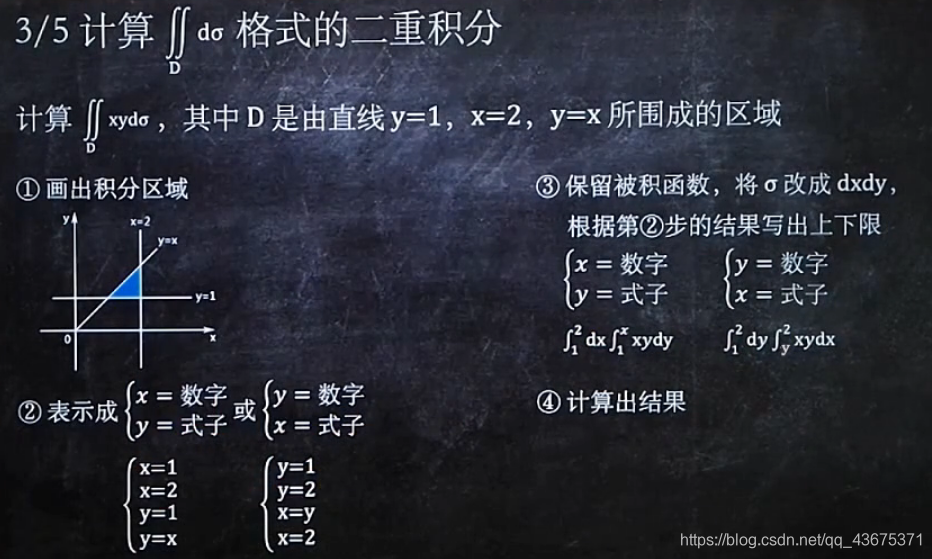 3/5 计算 ∬ dσ 格式的二重积分
D
计算 ∬ xydσ ，其中 D 是由直线 y=1，x=2，y=x 所围成的区域
D
① 画出积分区域
y
x=2
y=x
y=1
0
x
② 表示成 { x = 数字 或 { y = 数字
y = 式子 x = 式子
{ x=1 { y=1
x=2 y=2
y=1 x=y
y=x x=2
③ 保留被积函数，将 σ 改成 dxdy，
根据第②步的结果写出上下限
{ x = 数字 { y = 数字
y = 式子 x = 式子
∫₁² dx ∫₁ˣ xydy ∫₁² dy ∫ᵧ² xydx
④ 计算出结果
https://blog.csdn.net/qq_43675371